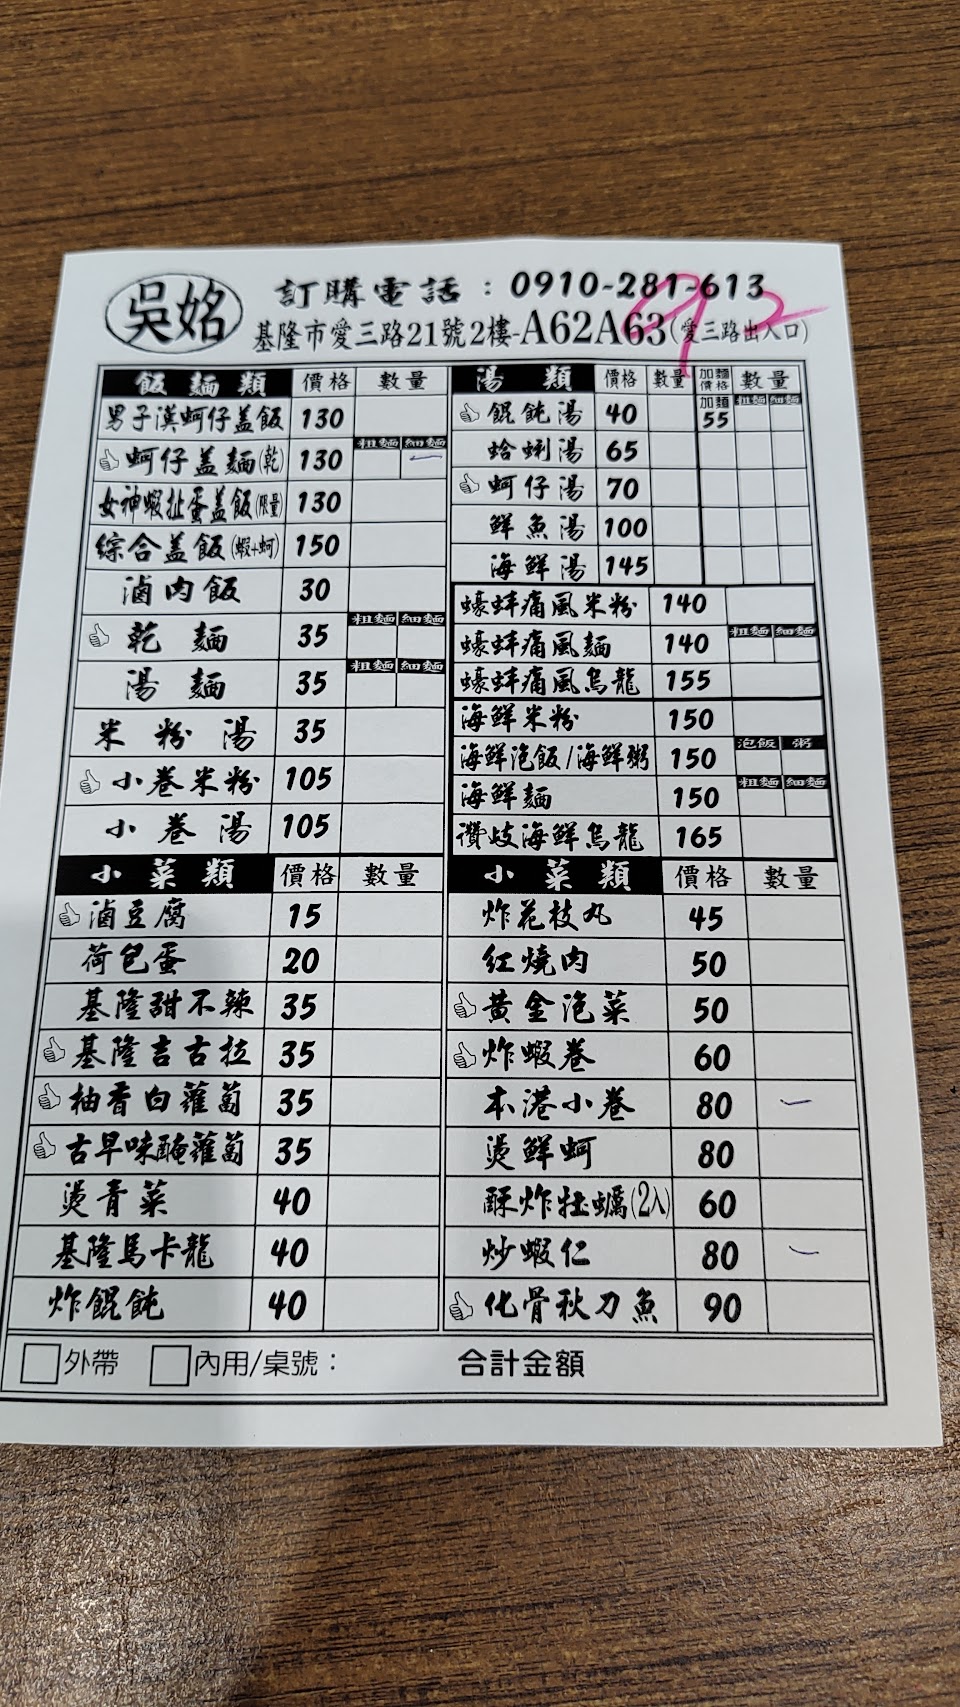 吳姳
訂購電話：0910-281-613
基隆市愛三路21號2樓-A62A63(愛三路出入口)
92
飯麵類 價格 數量
男子漢蚵仔盖飯 130
蚵仔盖麵(乾) 130 粗麵 細麵 一
女神蝦扯蛋盖飯(限量) 130
綜合盖飯(蝦+蚵) 150
滷肉飯 30
乾麵 35 粗麵 細麵
湯麵 35 粗麵 細麵
米粉湯 35
小卷米粉 105
小卷湯 105
湯類 價格 數量 加麵價格 數量
餛飩湯 40 加麵55 粗麵 細麵
蛤蜊湯 65
蚵仔湯 70
鮮魚湯 100
海鮮湯 145
蠔蚌痛風米粉 140
蠔蚌痛風麵 140 粗麵 細麵
蠔蚌痛風烏龍 155
海鮮米粉 150
海鮮泡飯/海鮮粥 150 泡飯 粥
海鮮麵 150 粗麵 細麵
讚岐海鮮烏龍 165
小菜類 價格 數量
滷豆腐 15
荷包蛋 20
基隆甜不辣 35
基隆吉古拉 35
柚香白蘿蔔 35
古早味醃蘿蔔 35
燙青菜 40
基隆馬卡龍 40
炸餛飩 40
小菜類 價格 數量
炸花枝丸 45
紅燒肉 50
黃金泡菜 50
炸蝦卷 60
本港小卷 80 一
燙鮮蚵 80
酥炸牡蠣(2入) 60
炒蝦仁 80 一
化骨秋刀魚 90
外帶 內用/桌號： 合計金額